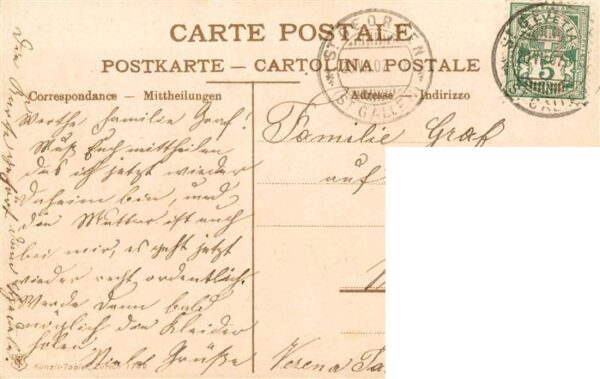 CARTE POSTALE
POSTKARTE — CARTOLINA POSTALE
Correspondance — Mittheilungen
Adresse — Indirizzo
ST. GEORGEN
(ST. GALLEN)
HELVETIA
5
Werthe Familie Graf!
Muß Euch mittheilen
das ich jetzt wieder
daheim bin, und
die Mutter ist auch
bei mir, es geht jetzt
wieder recht ordentlich.
Werde dann bald
möglich die Kleider
holen.
Viele Grüße
Verena
Familie Graf
auf
Künzli-Tobler, Zürich